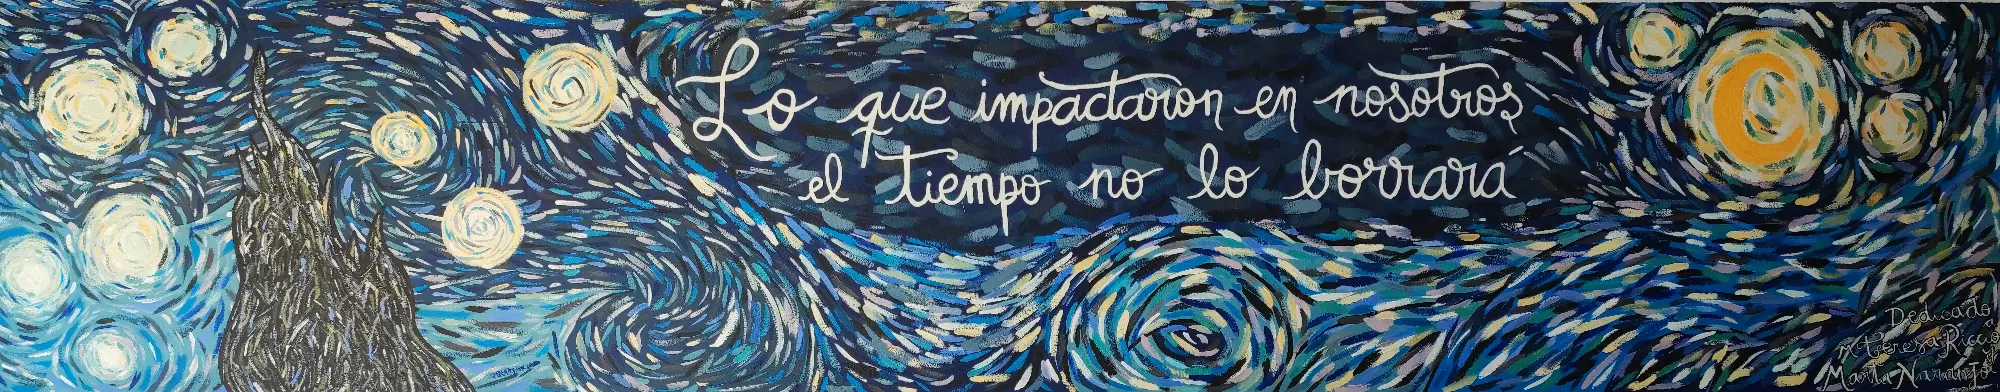 Lo que impactaron en nosotros,
el tiempo no lo borrará
Dedicado
a
Mª teresa Riccio
y
Marta Naranjo